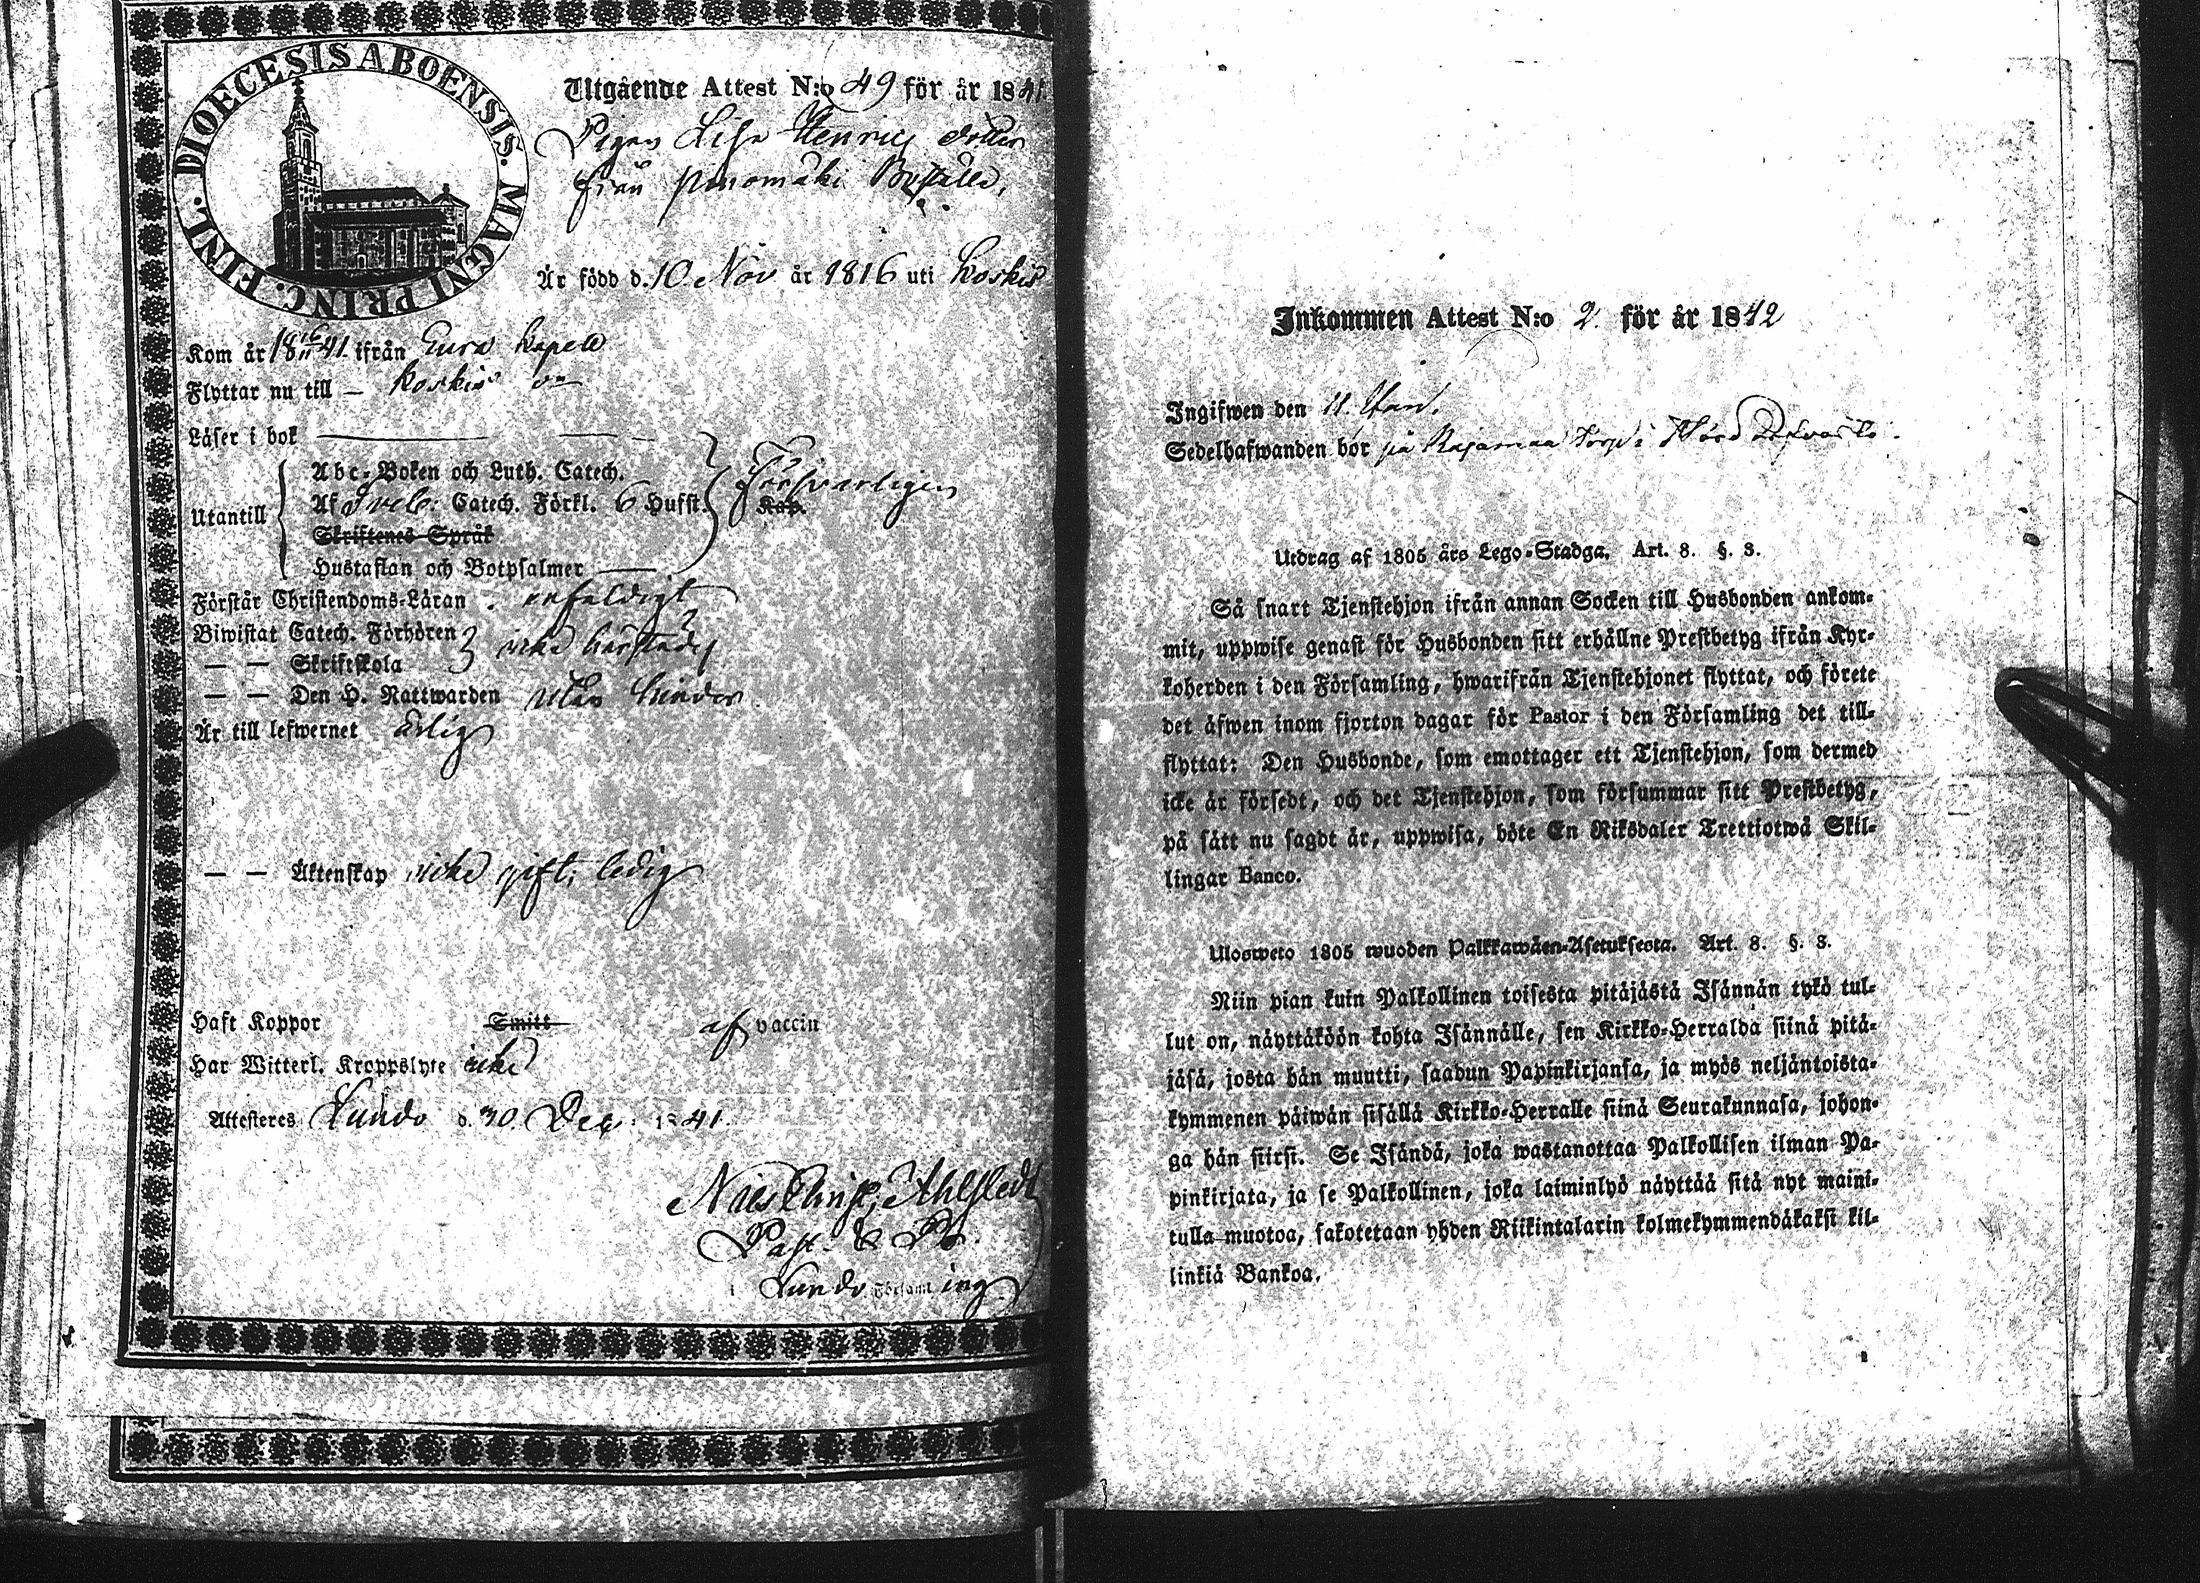 DIOECESIS ABOENSIS. MAGNI PRINC. FINL.
Utgående Attest N:o 49 för år 1841
Pigan Lisa Henrics dotter
från
Är född d. 10 Nov år 1816 uti Koskis
Kom år 18 16/11 41 ifrån Eura Kapell
Flyttar nu till — Koskis
Läser i bok
Utantill
Abc-Boken och Luth. Catech.
Af Sveb: Catech. Förkl. 6 Hufst.
Försvarligen
Kap.
Skriftenes Språk
Hustaflan och Botpsalmer
Förstår Christendoms-Läran enfaldigt
Biwistat Catech. Förhören
— — Skriftskola
icke härstädes
— — Den H. Nattwarden utan hinder
Är till lefwernet ärlig
— — Äktenskap icke gift; ledig
Haft Koppor Smitt af vaccin
Har Witterl. Kroppslyte icke
Attesteres Lundo d. 30 Dec: 1841.
Nils Ahlstedt
Past. & Pr.
i Lundo Församling
Inkommen Attest N:o 2. för år 1842
Ingifwen den 11. Jan.
Sedelhafwanden bor på Rajamaa Torp i
Utdrag af 1805 års Lego-Stadga. Art. 8. §. 3.
Så snart Tjenstehjon ifrån annan Socken till Husbonden ankom-
mit, uppwise genast för Husbonden sitt erhållne Prestbetyg ifrån Kyr-
koherden i den Församling, hwarifrån Tjenstehjonet flyttat, och förete
det äfwen inom fjorton dagar för Pastor i den Församling det till-
flyttat: Den Husbonde, som emottager ett Tjenstehjon, som dermed
icke är försedt, och det Tjenstehjon, som försummar sitt Prestbetyg,
på sätt nu sagdt är, uppwisa, böte En Riksdaler Trettiotwå Skil-
lingar Banco.
Ulosweto 1805 wuoden Palkkawäen-Asetuksesta. Art. 8. §. 3.
Niin pian kuin Palkollinen toisesta pitäjästä Isännän tykö tul-
lut on, näyttäköön kohta Isännälle, sen Kirkko-Herralda siinä pitä-
jäsä, josta hän muutti, saadun Papinkirjansa, ja myös neljäntoista-
kymmenen päiwän sisällä Kirkko-Herralle siinä Seurakunnasa, johon-
ga hän siirsi. Se Isändä, joka wastanottaa Palkollisen ilman Pa-
pinkirjata, ja se Palkollinen, joka laiminlyö näyttää sitä nyt maini-
tulla muotoa, sakotetaan yhden Riikintalarin kolmekymmendäkaksi kil-
linkiä Bankoa.